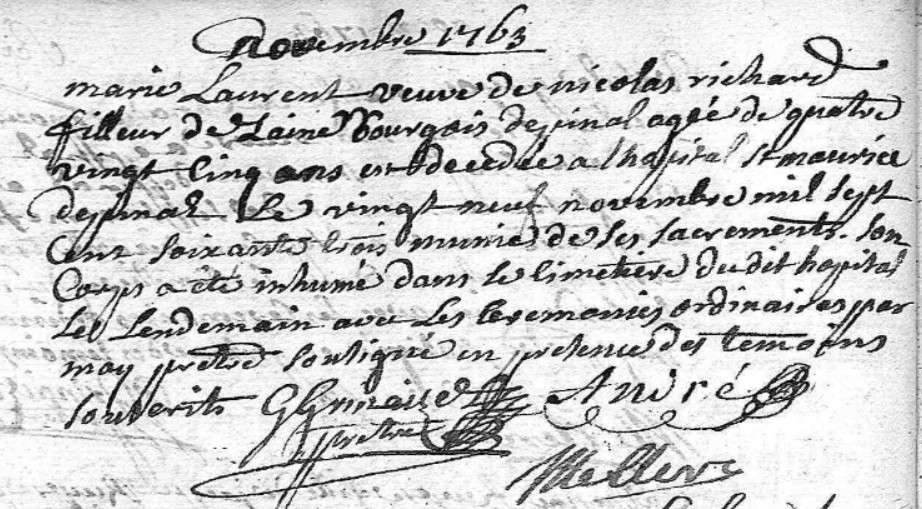 novembre 1763
marie Laurent veuve de nicolas richard
filleur de Laine Bourgois depinal agéé de quatre
vingt Cinq ans est decedée a lhopital st maurice
depinal Le vingt neuf novembre mil sept
Cent soixante trois munie de ses sacrements. son
Corps a été inhumé dans le Cimetière du dit hopital
Le Lendemain avec Les Ceremonies ordinaires par
moy prêtre sousigné en presence des temoins
souscrits
prêtre André